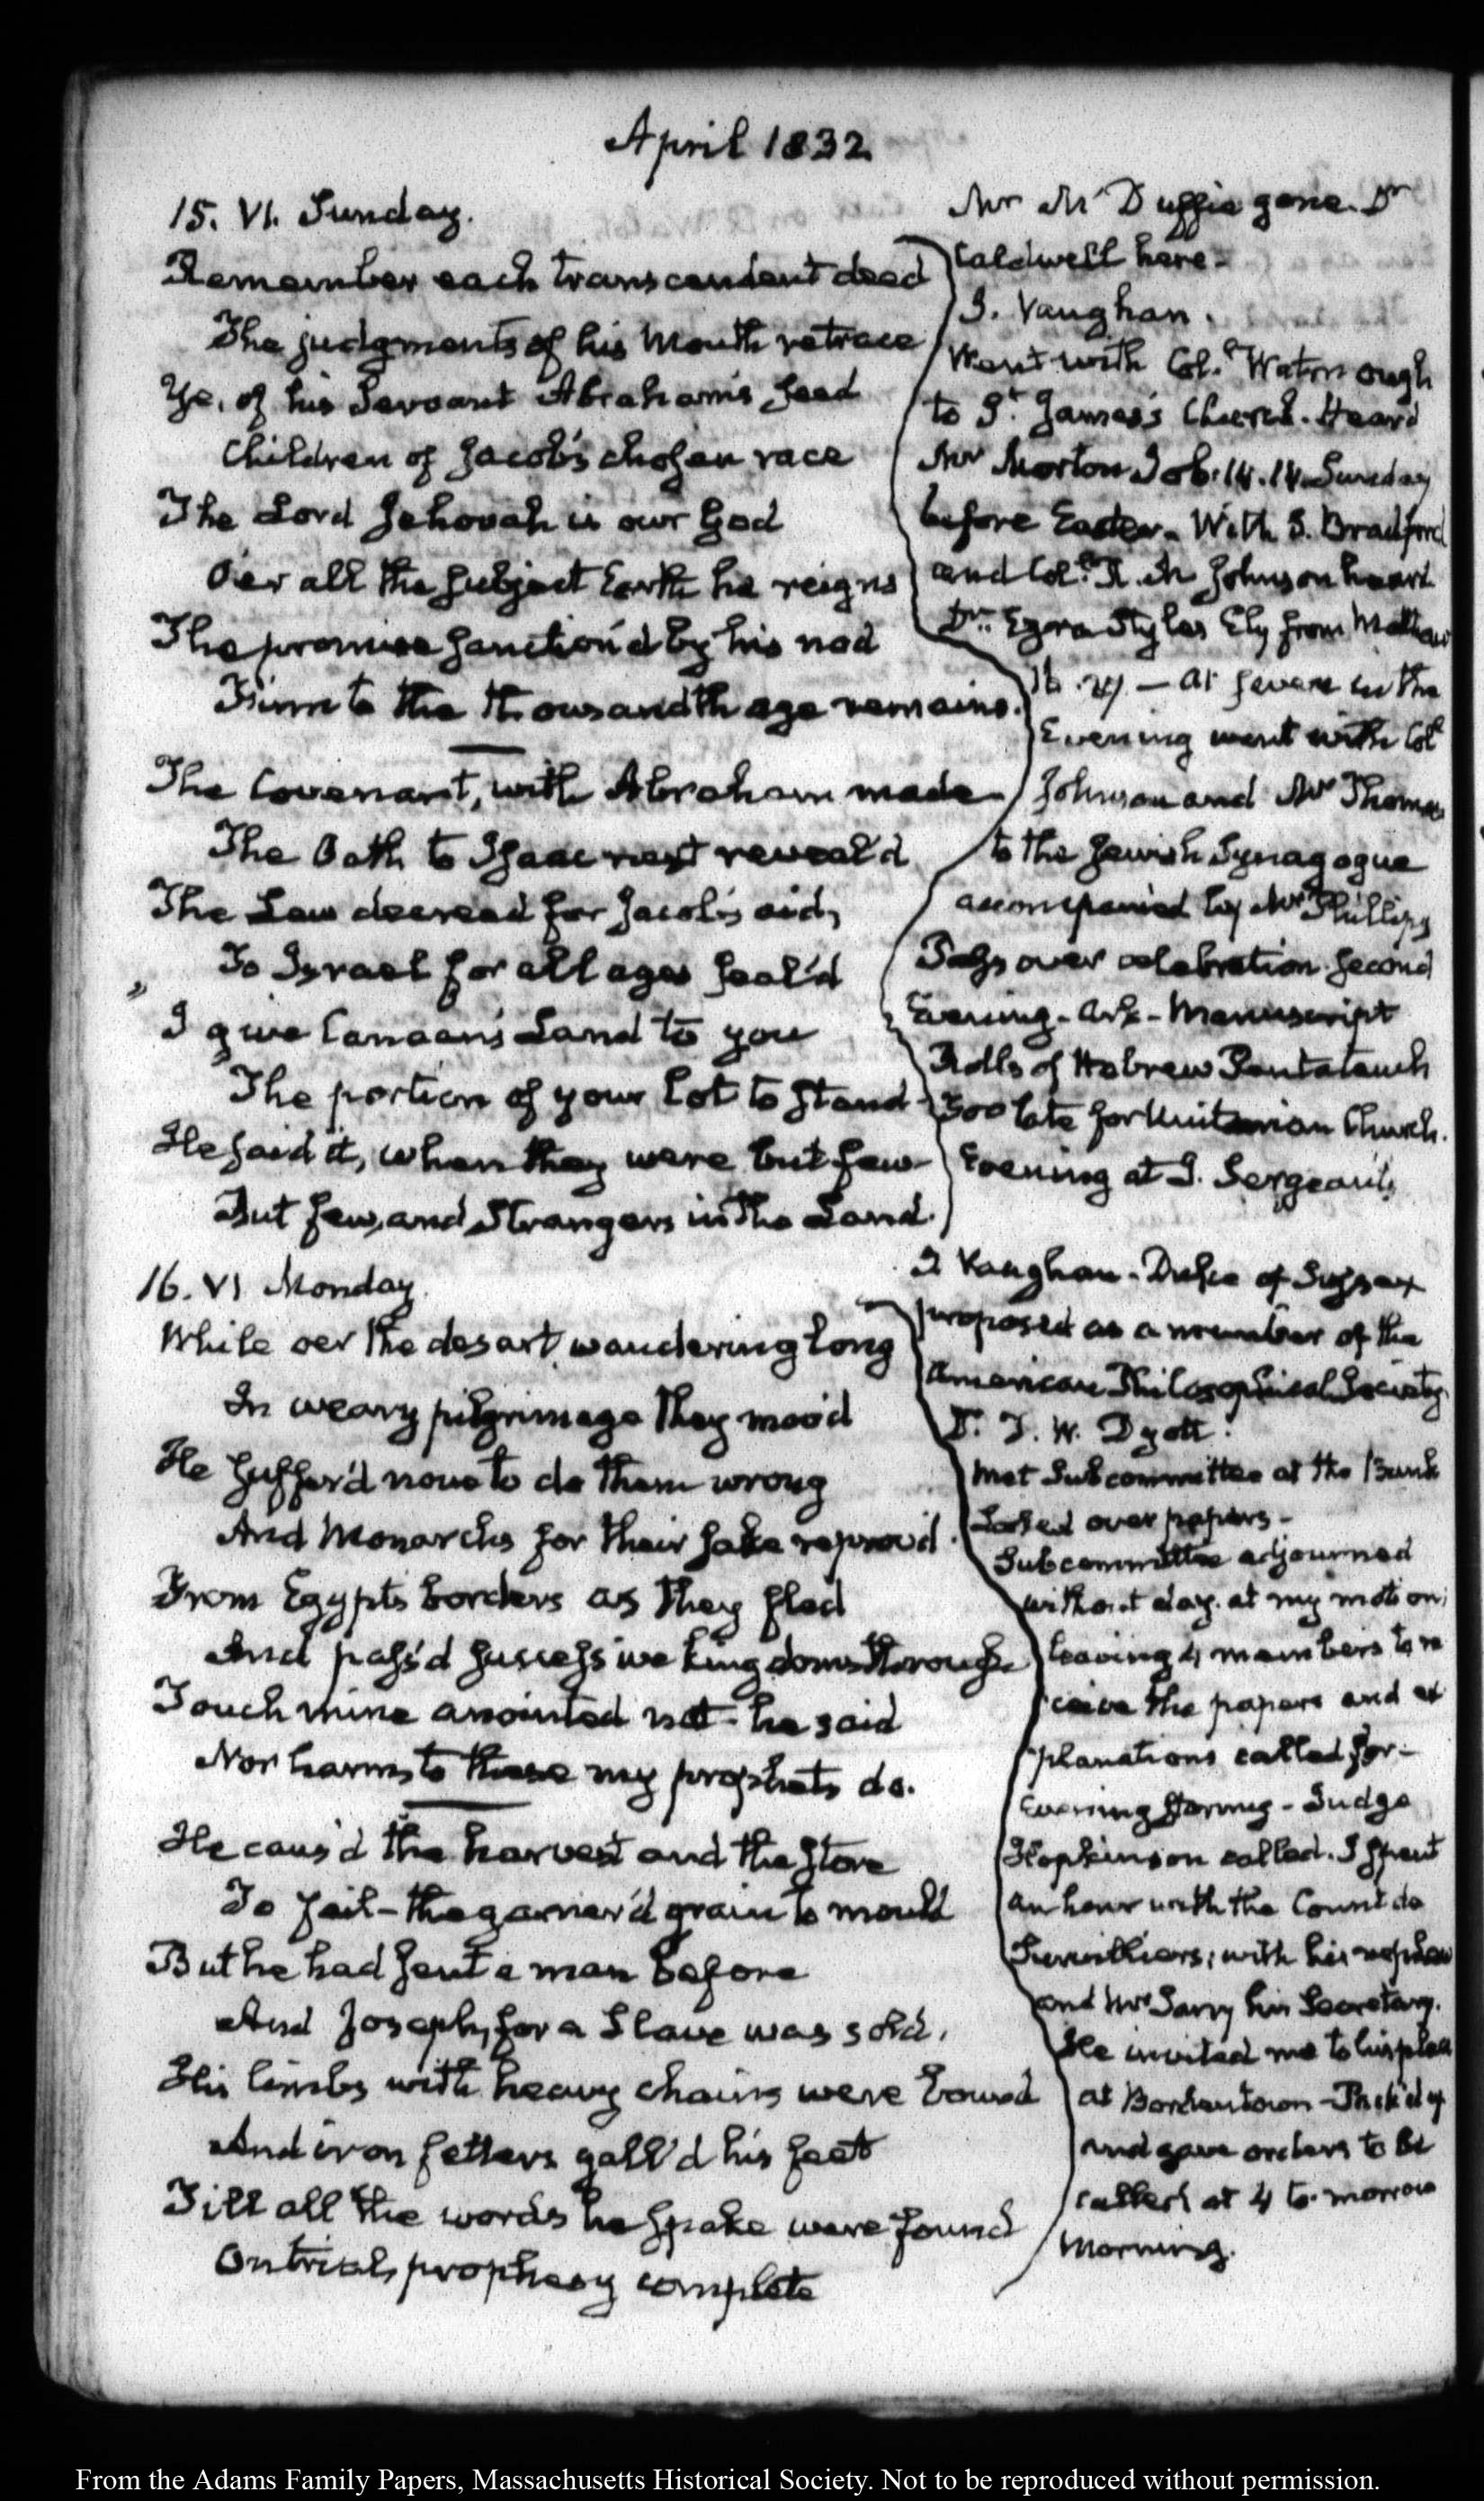 April 1832
15. VI. Sunday.
Remember each transcendent deed
The judgments of his Mouth retrace
Ye, of his Servant Abraham's seed
Children of Jacob's chosen race
The Lord Jehovah is our God
O'er all the subject Earth he reigns
The promise sanction'd by his nod
Firm to the thousandth age remains.
The Covenant, with Abraham made
The Oath to Isaac next reveal'd
The Law decreed for Jacob's aid,
To Israel for all ages seal'd
" I give Canaan's Land to you
The portion of your Lot to stand
He said it, when they were but few
But few, and Strangers in the Land.
Mr McDuffie gone. Dr
Caldwell here-
J. Vaughan.
Went with Col. Watmough
to St. James's Church. Heard
Mr Morton Job. 14. 14. Sunday
before Easter. With S. Bradford
and Col. R. M Johnson heard
Dr. Ezra Styles Ely from Mathew
16. 24 — at seven in the
Evening went with Col
Johnson and Mr Thomas
to the Jewish Synagogue
accompanied by Mr Phillips
Passover celebration second
Evening - Ark - Manuscript
Rolls of Hebrew Pentateuch
Too late for Unitarian Church.
Evening at J. Sergeant's
16. VI Monday.
While oer the desart wandering long
In weary pilgrimage they mov'd
He suffer'd none to do them wrong
And Monarchs for their sake reprov'd.
From Egypt's borders as they fled
And pass'd successive kingdoms through
Touch mine anointed not - he said
Nor harm to these my prophets do.
He caus'd the harvest and the store
To fail - the garner'd grain to mould
But he had sent a man before
And Joseph, for a Slave was sold,
His limbs with heavy chains were bound
And iron fetters gall'd his feet
Till all the words he spake were found
On trial, prophecy complete
J Vaughan - Duke of Sussex
proposed as a member of the
American Philosophical Society
Dr. T. W. Dyott.
Met Subcommittee at the Bank
Looked over papers -
Subcommittee adjourned
without day. at my motion;
leaving 4 members to re
ceive the papers and ex
planations called for -
Evening - Judge
Hopkinson called. I spent
an hour with the Count de
Survilliers; with his nephew
and Mr Sarry his Secretary.
He invited me to his place
at Bordentown - Pack'd up
and gave orders to be
called at 4 to-morrow
Morning.
From the Adams Family Papers, Massachusetts Historical Society. Not to be reproduced without permission.